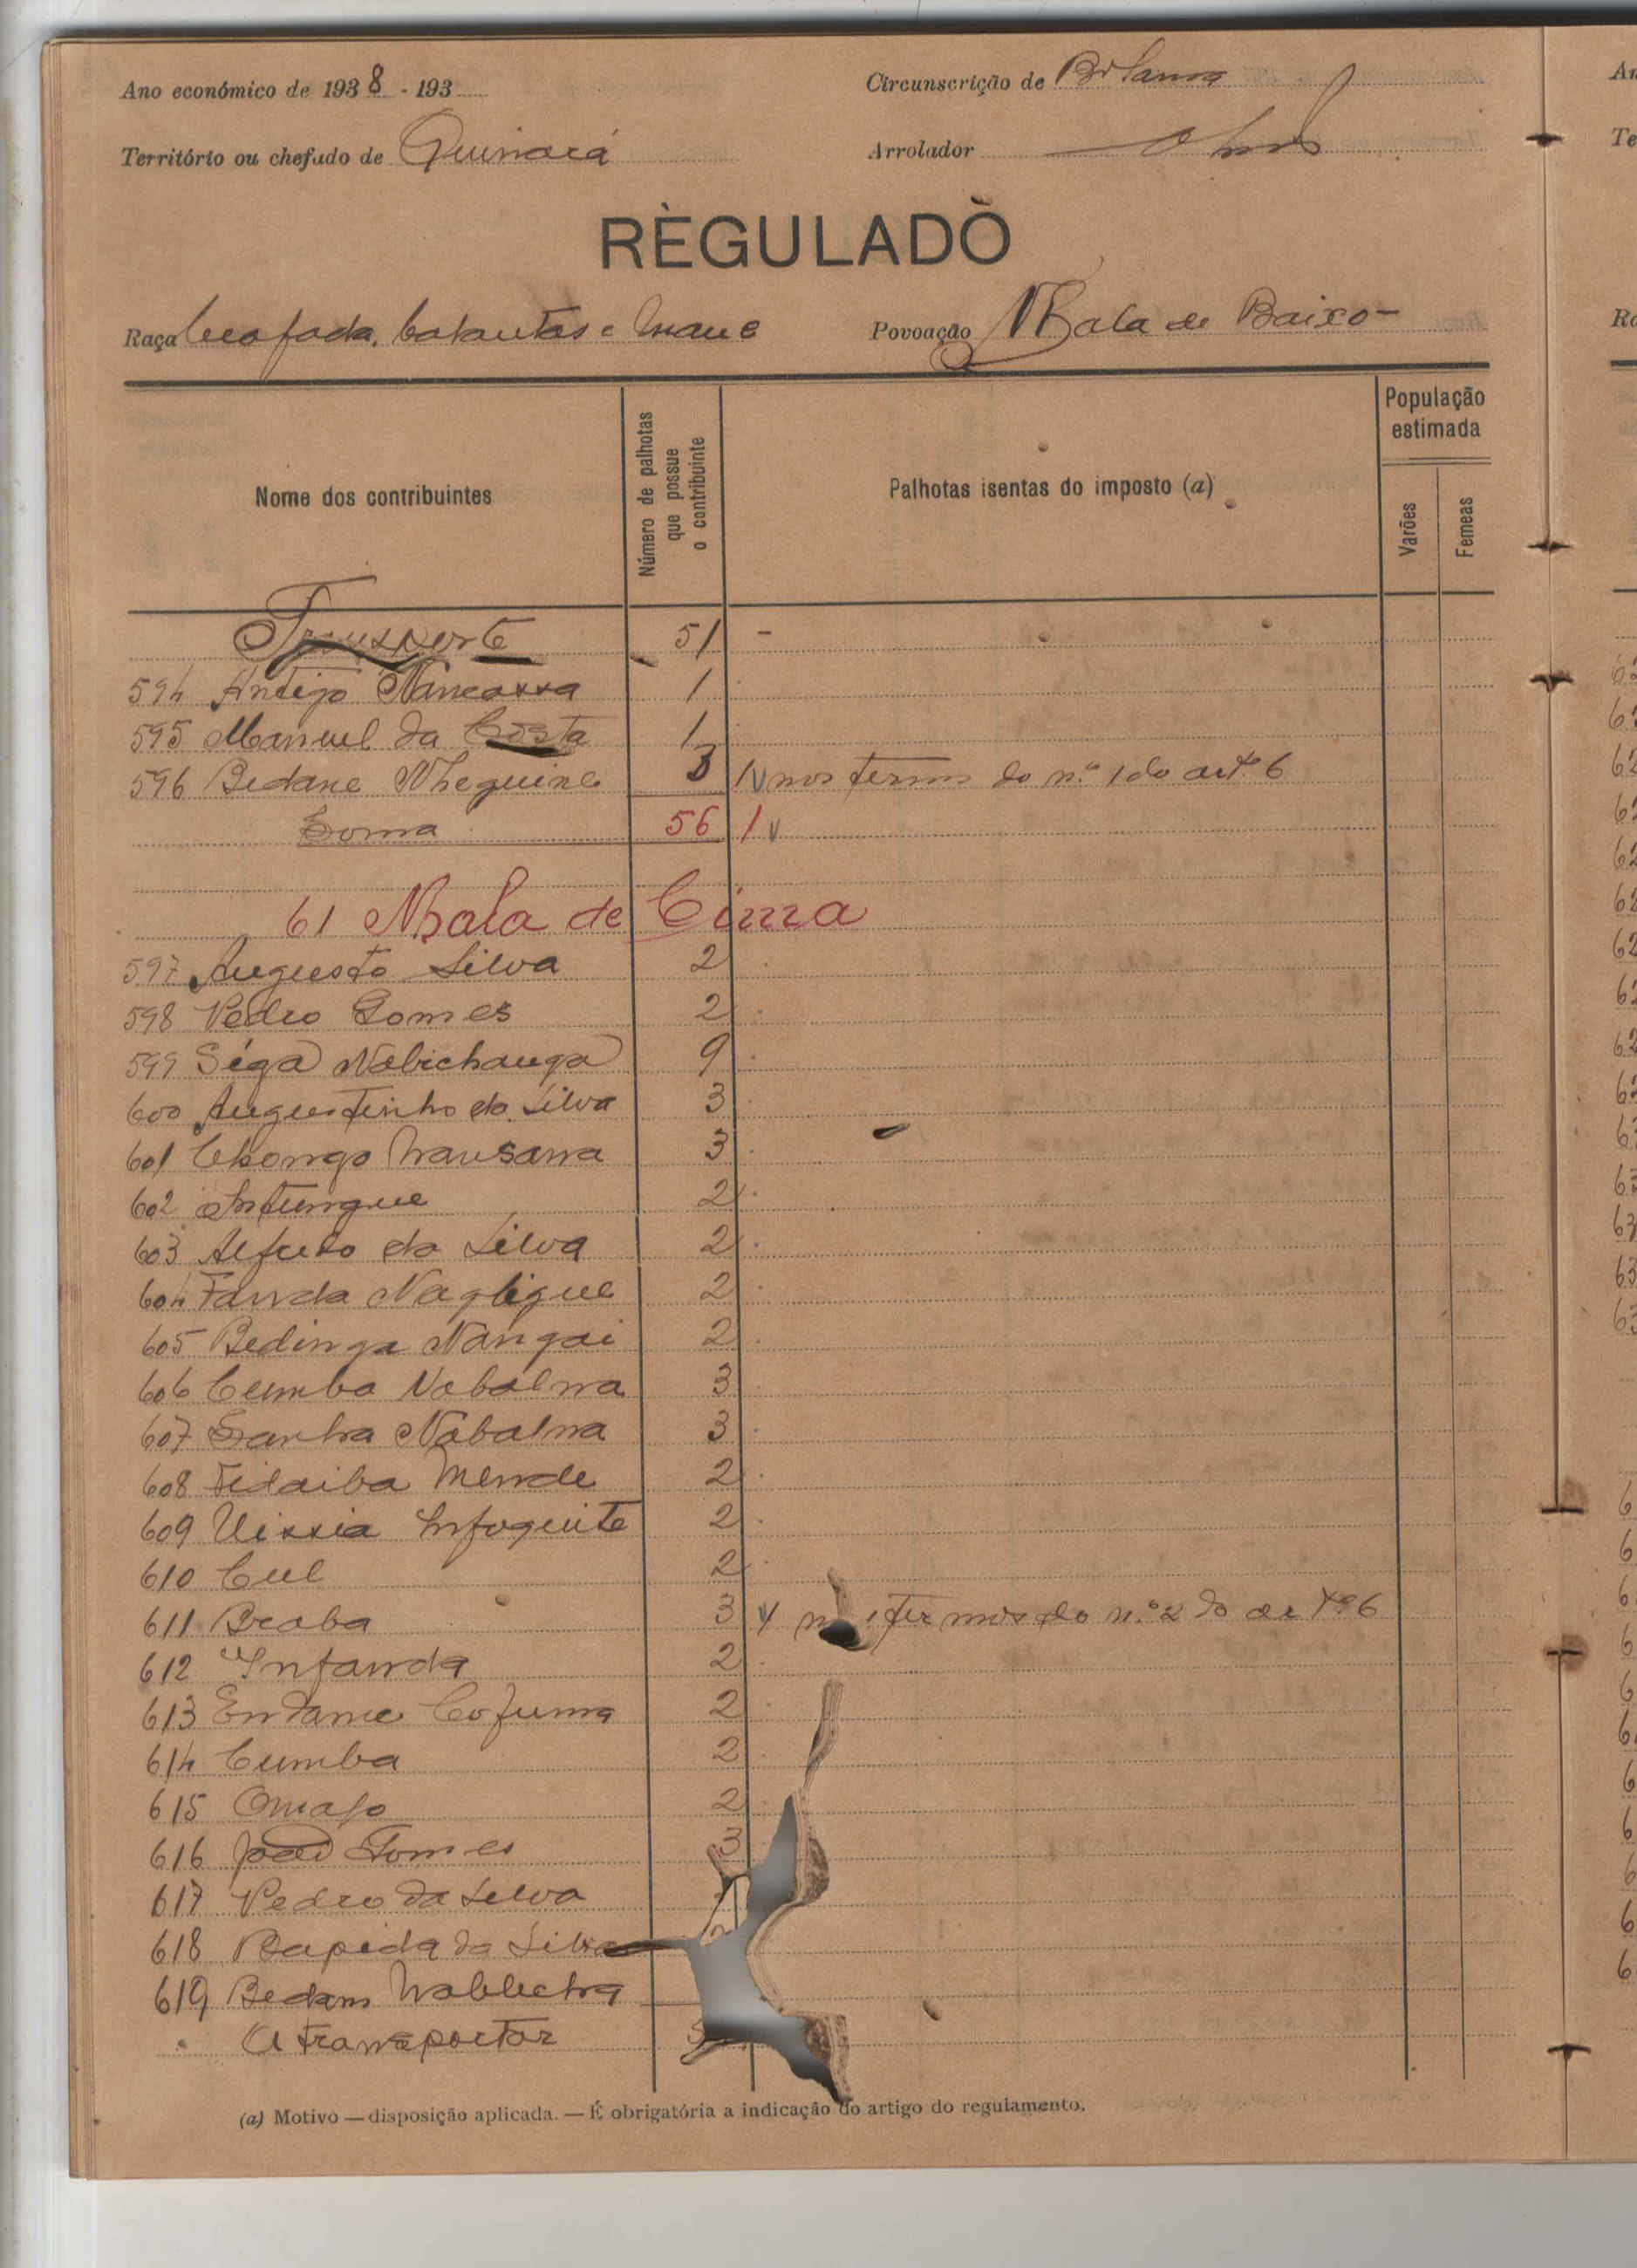 Ano económico de 1938 - 193
Circunscrição de Bolama
Território ou chefado de Quinará
Arrolador
RÈGULADÒ
Raça Beafada, balantas e mané
Povoação Nhala de Baixo -
Nome dos contribuintes
Número de palhotas que possue o contribuinte
Palhotas isentas do imposto (a)
População estimada
Varões
Femeas
Transporte 51 -
594 Antigo Namcassa 1
595 Manuel da Costa 1
596 Bedane Nhaguine 3 1 v nos termos do n.º 1 do artº 6
Soma 56 1 v
61 Nhala de Cima
597 Augusto Silva 2
598 Pedro Gomes 2
599 Séga Nabichauga 9
600 Augustinho da Silva 3
601 Chongo Nausanna 3
602 Intungue 2
603 Alfredo da Silva 2
604 Fanda Nagligue 2
605 Bedinga Nangai 2
606 Cumba Nabalna 3
607 Sanha Nabalna 3
608 Fidaiba Mende 2
609 Uissia Infoguite 2
610 Cul 2
611 Braba 3 v nos termos do n.º 2 do artº 6
612 Infanda 2
613 Endame Cofuma 2
614 Cumba 2
615 Omafo 2
616 João Gomes 3
617 Pedro da Silva
618 Rapida da Silva
619 Bedam Nablecha
A transportar
(a) Motivo — disposição aplicada. — É obrigatória a indicação do artigo do regulamento.